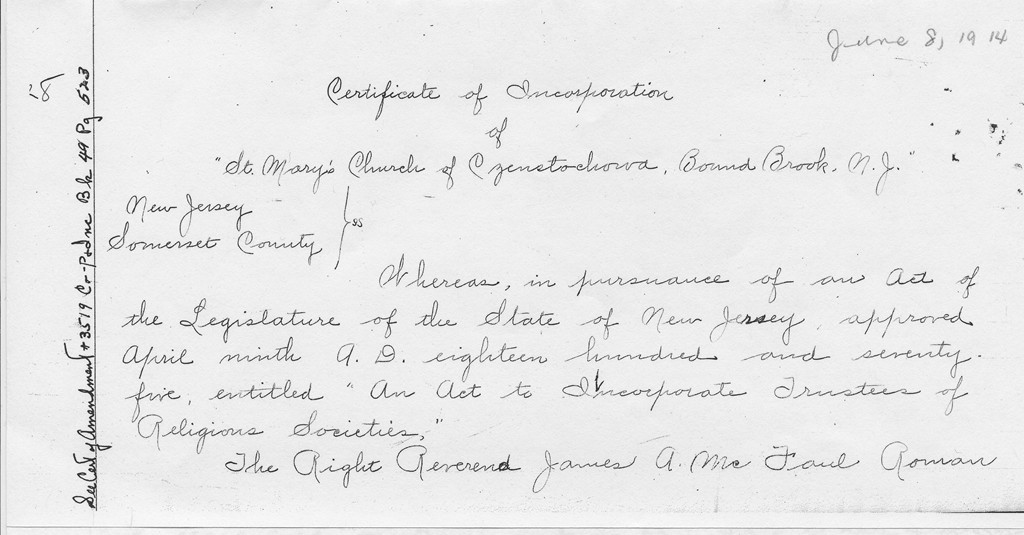 June 8, 1914
'18
See Cert of Amendment #3519 Co-Pt Inc Bk 49 Pg 523
Certificate of Incorporation
of
"St. Mary's Church of Czenstochowa, Bound Brook, N.J."
New Jersey
Somerset County } ss
Whereas, in pursuance of an Act of
the Legislature of the State of New Jersey, approved
April ninth A.D. eighteen hundred and seventy-
five, entitled "An Act to Incorporate Trustees of
Religious Societies,"
The Right Reverend James A. Mc Faul Roman